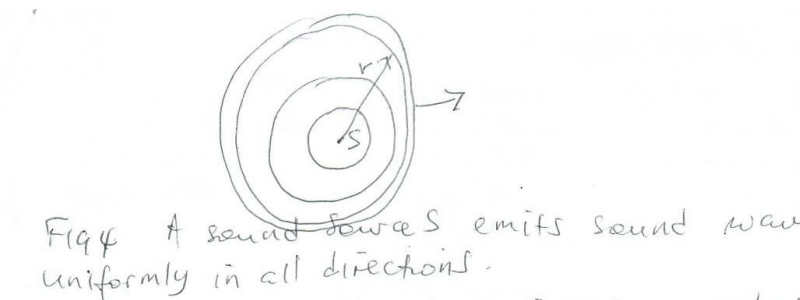 r
S
Fig 4 A sound source S emits sound wav
uniformly in all directions.